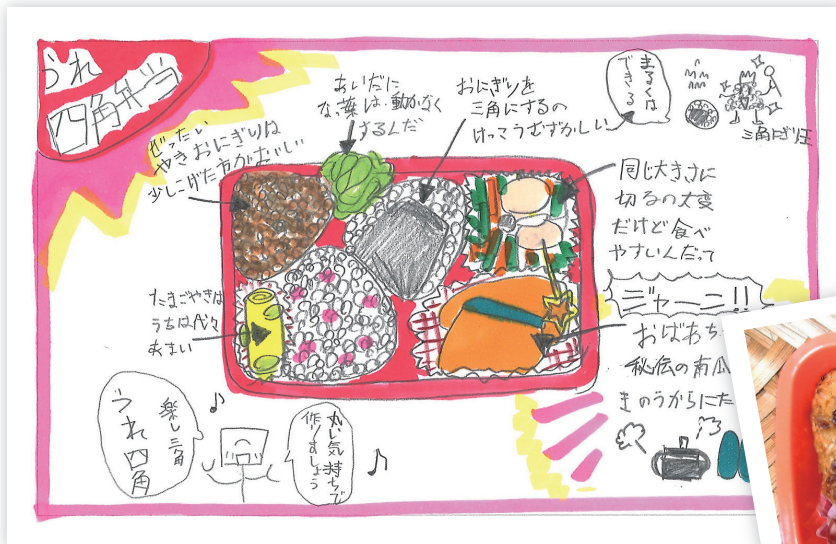 うれ
四角弁当
ぜったい
やきおにぎりは
少しこげた方がおいしい
あいだに
な葉は、動かなく
するんだ
おにぎりを
三角にするの
けっこうむずかしい
まるくは
できる
三角にぎり王
同じ大きさに
切るの大変
だけど食べ
やすいんだって
ジャーン!!
おばあち
秘伝の南瓜
きのうからにた
たまごやきは
うちは代々
あまい
楽し三角
うれ四角
丸い気持ちで
作りましょう